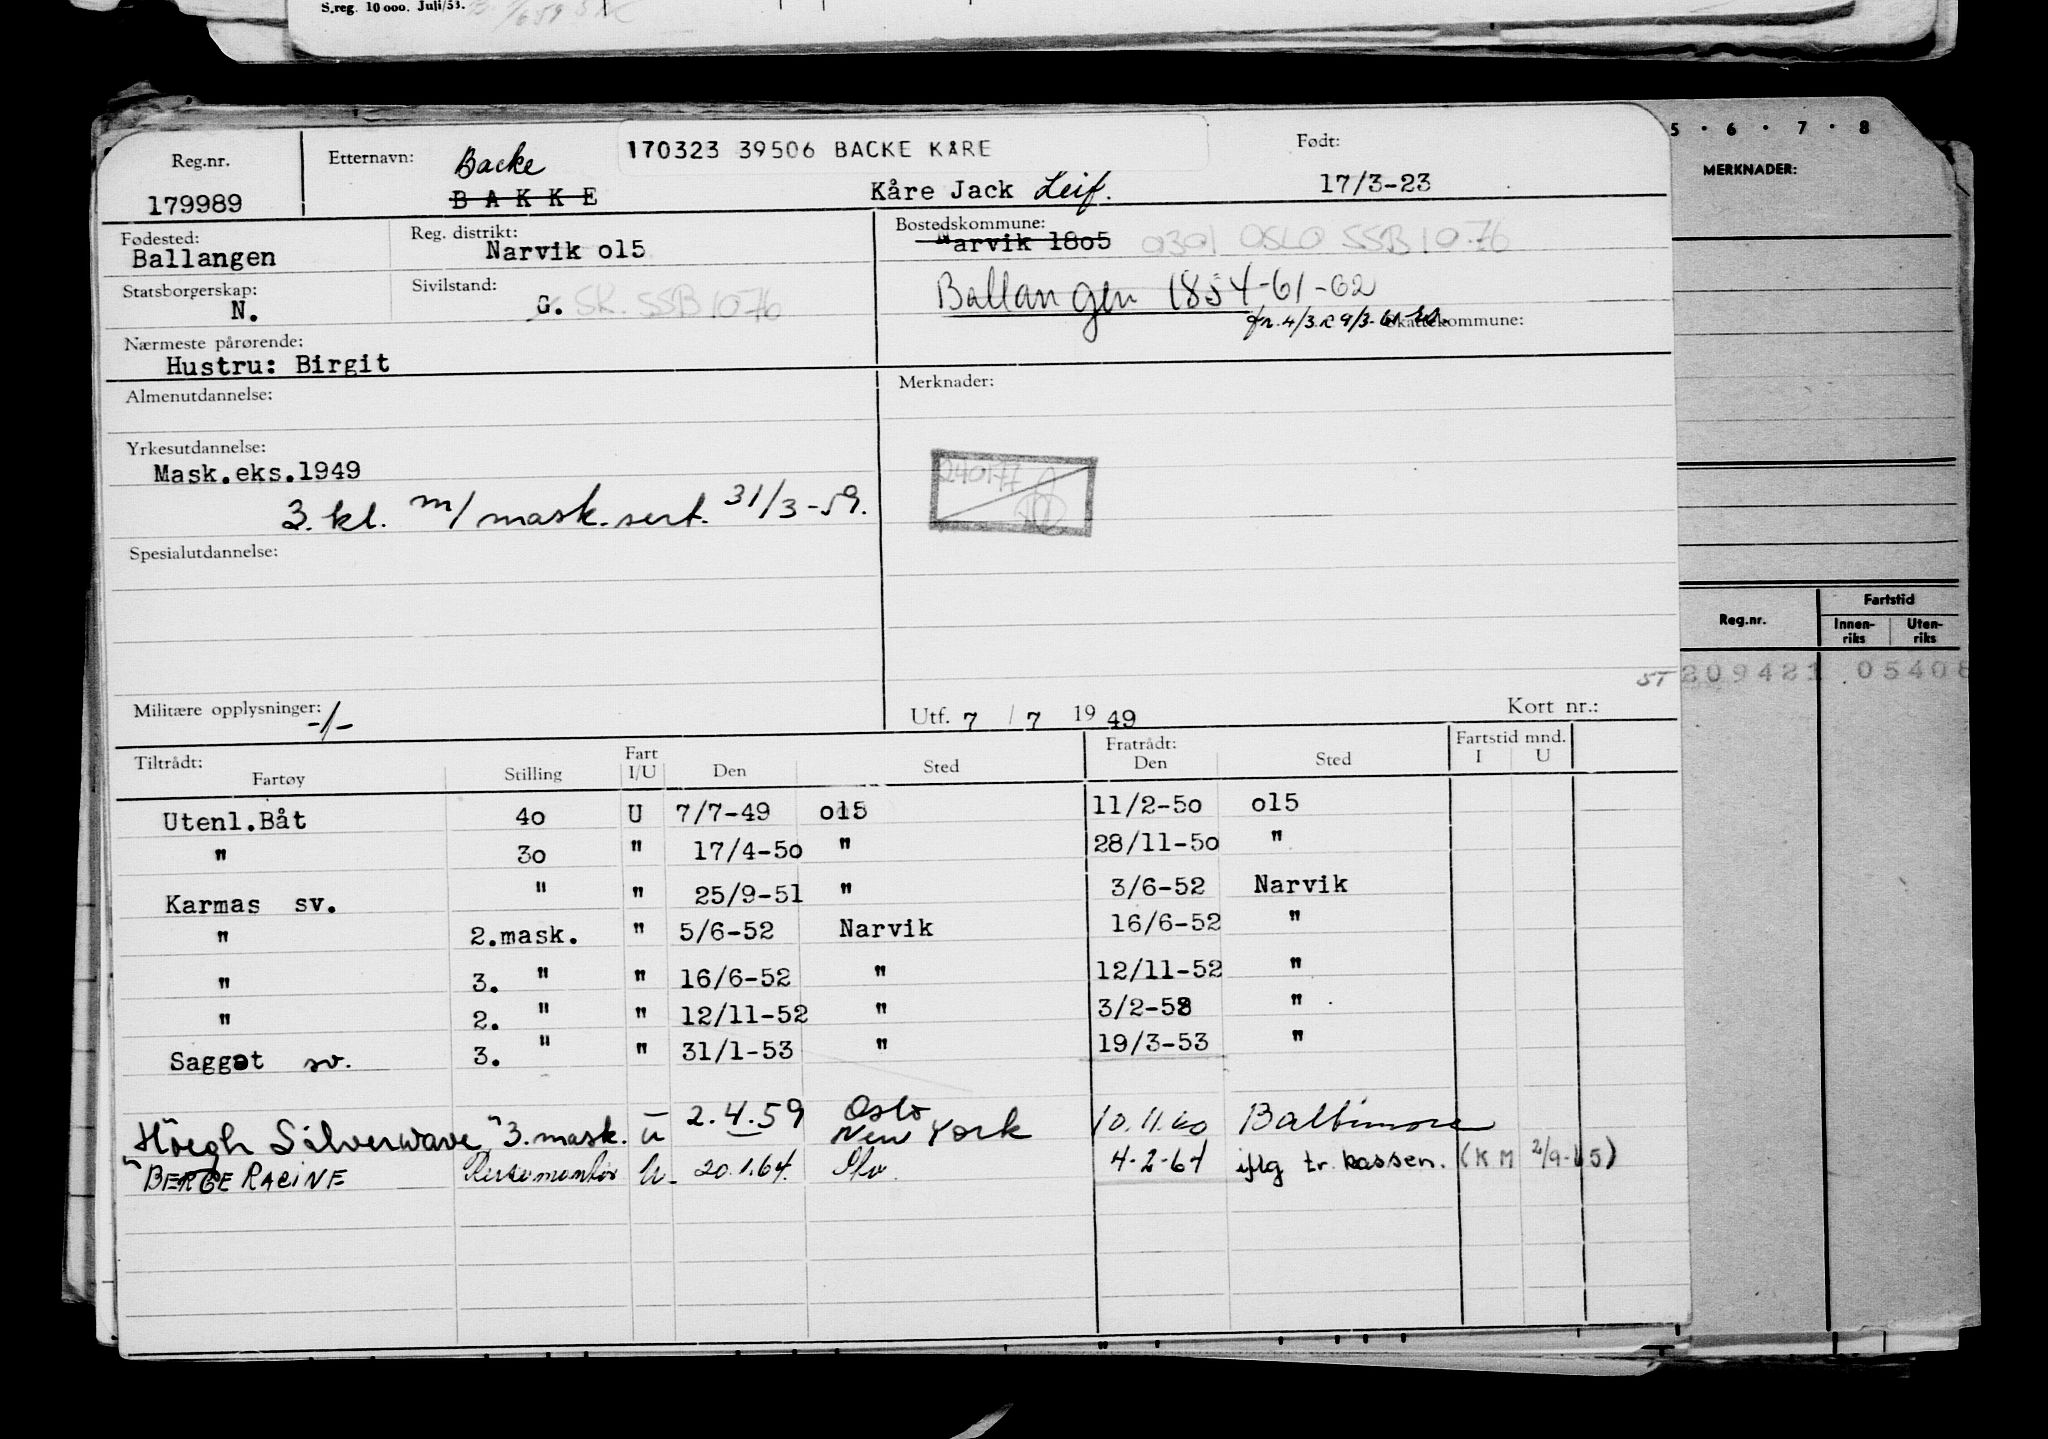 S.reg. 10 000. Juli/53.
5 · 6 · 7 · 8
MERKNADER:
Reg.nr. Etternavn: Backe 170323 39506 BACKE KÅRE Født:
179989 BAKKE Kåre Jack Leif. 17/3-23
Fødested: Reg. distrikt: Bostedskommune:
Ballangen Narvik o15 Narvik 18o5 0301 OSLO SSB 10.76
Statsborgerskap: Sivilstand: Ballangen 1854-61-62
N. G. SK. SSB 1076
Skattekommune:
Nærmeste pårørende:
Hustru: Birgit
Almenutdannelse: Merknader:
Yrkesutdannelse:
Mask.eks.1949 240177
3. kl. m/ mask.sert. 31/3-59.
Spesialutdannelse:
Militære opplysninger: -/- Utf. 7 / 7 19 49 Kort nr.:
Tiltrådt: Fart Fratrådt: Fartstid mnd.
Fartøy Stilling I/U Den Sted Den Sted I U
Utenl.Båt 4o U 7/7-49 o15 11/2-5o o15
" 3o " 17/4-5o " 28/11-5o "
Karmas sv. " " 25/9-51 " 3/6-52 Narvik
" 2.mask. " 5/6-52 Narvik 16/6-52 "
" 3. " " 16/6-52 " 12/11-52 "
" 2. " " 12/11-52 " "
Saggat sv. 3. " " 31/1-53 " 19/3-53 "
"Höegh Silverwave" 3. mask. u 2.4.59 Oslo New York 10.11.60 Baltimore
"BERGE RACINE u. 20.1.64. 4-2-64 iflg tr. kassen. (KM 2/9-65)
Reg.nr. Fartstid
Innen-riks Uten-riks
ST 209421 05408